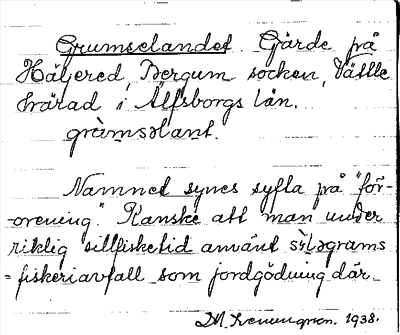 Grumselandet. Gärde på
Häljered, Bergum socken, Vättle
härad i Älfsborgs län.
gràmsəlant.
Namnet synes syfta på "för-
orening". Kanske att man under
riklig sillfisketid använt sìləgrams
= fiskeriavfall som jordgödning där.
1938.